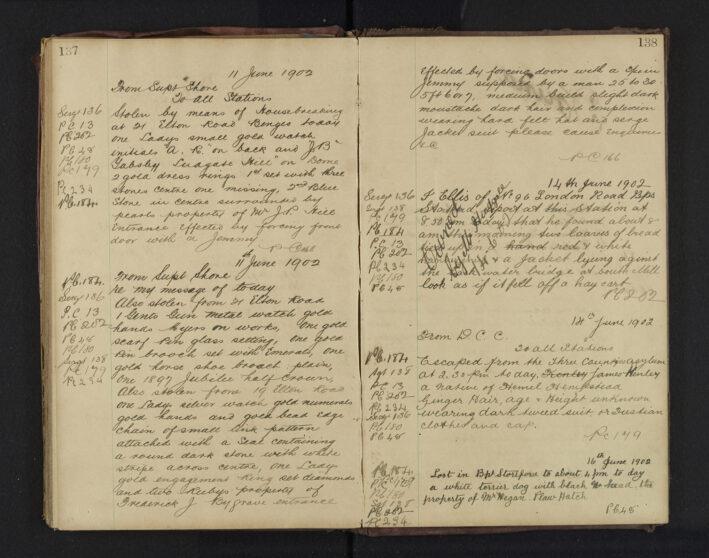 137
11 June 1902
From Supt Shore
To All Stations
Stolen by means of Housebreaking
at 21 Elton Road Benges today
one Ladys small gold watch
initials "A. R." on back and "J.B
Gabsby Ludgate Hill" on Dome
2 gold dress rings 1st set with three
stones centre one missing, 2nd Blue
Stone in centre surrounded by
pearls property of Mr J.P. Hill
entrance effected by forcing front
door with a Jemmy
Sergt 136
PC 13
PC 282
PC 48
PC 180
PC 149
PC 234
PC 184
11th June 1902
From Supt Shore
re my message of today
Also stolen from 21 Elton Road
1 Gents Gun metal watch gold
hands Myers on works, one gold
scarf Pin glass setting, one gold
Pin brooch set with Emerals, one
gold horse shoe broach plain,
one 1897 Jubilee half Crown,
Also stolen from 19 Elton Road
one Ladys silver watch gold numerals
gold hands and gold bead edge
chain of small link pattern
attached with a Seal containing
a round dark stone with white
stripe across centre, one Lady
gold engagement Ring set diamonds
and two Rubys property of
Frederick J. Rygrave entrance
PC 184
Sergt 136
P.C 13
PC 282
PC 48
PC 180
Sergt 138
PC 149
PC 234
138
effected by forcing doors with a
Jemmy supposed by a man 25 to 30
5ft 6 or 7, medium build slight dark
moustache dark hair and complexion
wearing hard felt hat and serge
Jacket suit please cause Enquiries
&c
PC 166
14th June 1902
F Ellis of No 96 London Road Bps
Stortford report at this Station at
8.30 pm today that he found about 8
am this morning six loaves of bread
tied up in a hand red & white
& a Jacket lying against
the water bridge at South Mill
look as if it fell off a hay cart
PC 282
Sergt 136
Sergt 138
PC 149
PC 184
PC 13
PC 282
PC 234
PC 180
PC 48
14th June 1902
From D.C.C.
To all Stations
Escaped from the Three Counties Asylum
at 2.30 pm to day, Henley James Henley
a native of Hemel Hempstead
Ginger Hair, age & Height unknown
wearing dark tweed suit or Fustian
clothes and cap.
PC 149
PC 184
Sgt 138
PC 13
PC 282
PC 234
Sergt 136
PC 180
PC 48
16th June 1902
Lost in Bps Stortford to about 4 pm to day
a white terrier dog with black head. the
property of Mr Wegan Plaw Hatch
PC 48
PC 184
PC 149
PC 180
PC 48
PC 282
PC 234